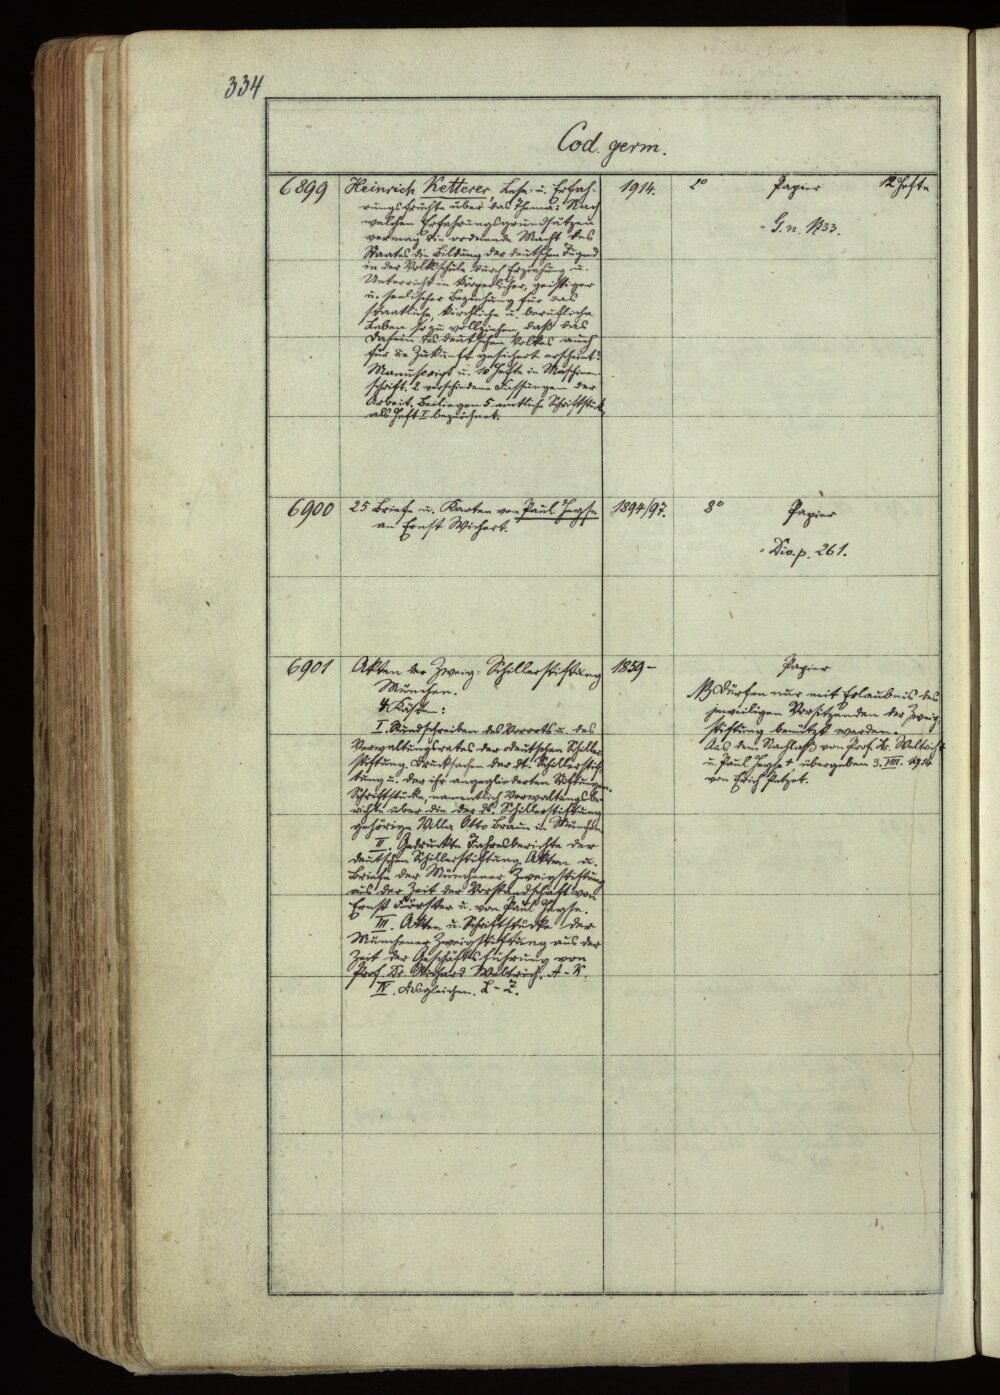 334
Cod. germ.
6899
Heinrich Ketterer, Lese- u. Erfah-
rungsfrüchte über das Thema: Nach
welchen Erfahrungsgrundsätzen
vermag die ordnende Macht des
Staates die Bildung der deutschen Jugend
in der Volksschule durch Erziehung u.
Unterricht in körperlicher, geistiger
u. seelischer Beziehung für das
staatliche, kirchliche u. berufliche
Leben so zu vollziehen, daß das
Dasein des deutschen Volkes auch
für die Zukunft gesichert erscheint?
Manuscript u. 10 Hefte in Maschinen-
schrift. 2 verschiedene Fassungen der
Arbeit. Beiliegen 5 amtliche Schriftstücke,
als Heft I bezeichnet.
1914.
2°
Papier
12 Hefte
G. n.
6900
25 Briefe u. Karten von Paul Heyse
an Ernst Wichert.
1894/97.
8°
Papier
Div. p. 261.
6901
Akten der Zweig-Schillerstiftung
München.
4 Kästen:
I. Rundschreiben des Vororts u. des
Verwaltungsrates der deutschen Schiller-
stiftung. Drucksachen der dt. Schillerstif-
tung u. der ihr angegliederten Stiftungen.
Schriftstücke, namentlich Verwaltungsbe-
richte über die der dt. Schillerstiftung
gehörige Villa Otto Braun in München
II. Gedruckte Jahresberichte der
deutschen Schillerstiftung. Akten u.
Briefe der Münchener Zweigstiftung
aus der Zeit der Vorstandschaft von
Ernst Förster u. von Paul Heyse.
III. Akten u. Schriftstücke der
Münchener Zweigstiftung aus der
Zeit der Geschäftsführung von
Prof. Dr. Richard Weltrich. A-K.
IV. desgleichen. L-Z.
1859-
Papier
NB Dürfen nur mit Erlaubnis des
jeweiligen Vorsitzenden der Zweig-
stiftung benützt werden.
Aus dem Nachlaß von Prof. Dr. Weltrich †
u. Paul Heyse † übergeben 3. VIII. 1914
von Erich Petzet.